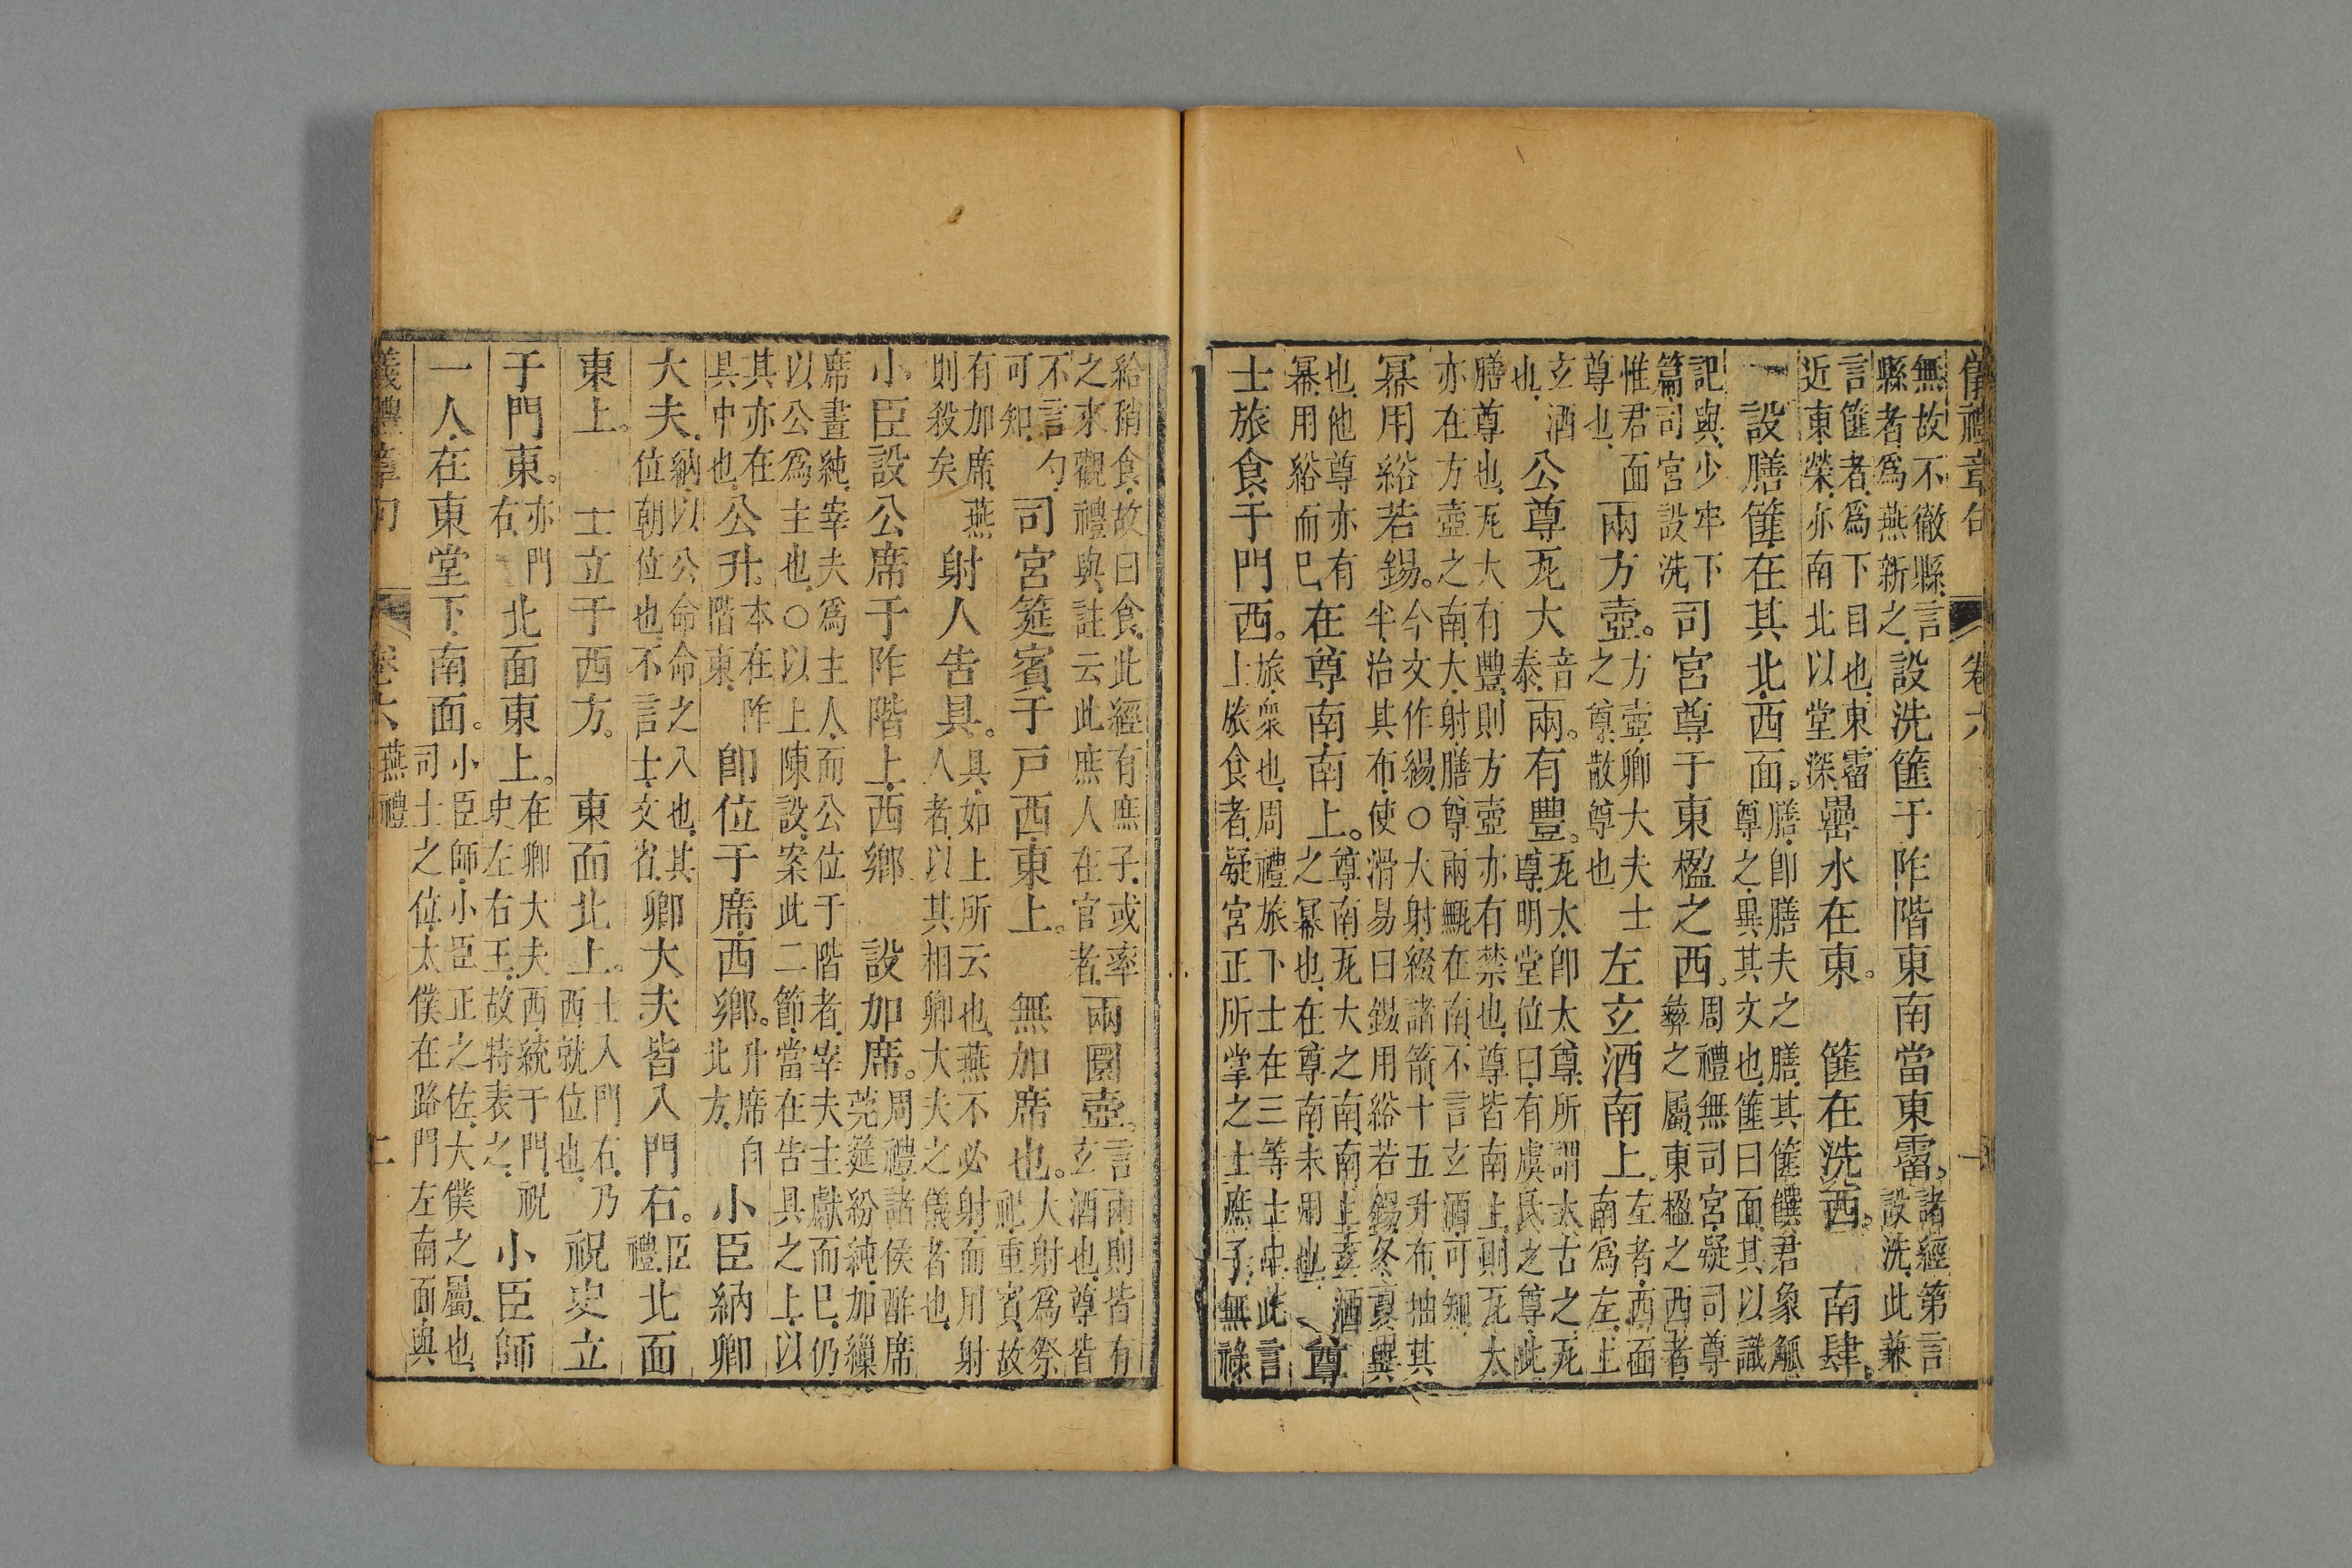 儀禮章句 卷六
無故不徹縣言
縣者爲燕新之設洗篚于阼階東南當東霤諸經第言
設洗此兼
言篚者爲下目也東霤
近東榮亦南北以堂深罍水在東。篚在洗西。南肆
設膳篚在其北西面。膳卽膳夫之膳其篚饌君象觚
尊之異其文也篚曰面其以識
記與少牢下
篇司宮設洗司宮尊于東楹之西。周禮無司宮疑司尊
彝之屬東楹之西者
惟君面
尊也兩方壺。方壺卿大夫士
之尊散尊也左玄酒南上左者西面
南爲左上
玄酒
也公尊瓦大音
泰兩。有豐。瓦太卽太尊所謂太古之瓦
尊明堂位曰有虞氏之尊此
膳尊也瓦大有豐則方壺亦有禁也尊皆南上則瓦太
亦在方壺之南大射膳尊兩甒在南不言玄酒可知
冪用綌若錫。今文作緆○大射綴諸箭十五升布抽其
半治其布使滑易曰錫用綌若錫冬夏異
也他尊亦有
冪用綌而巳在尊南南上。尊南瓦大之南南上玄酒
之冪也在尊南未用也尊
士旅食于門西。旅衆也周禮旅下士在三等士中此言
上旅食者疑宮正所掌之士庶子無祿
給稍食故曰食此經有庶子或率
之來觀禮與註云此庶人在官者兩圜壺。言兩則皆有
玄酒也尊皆
不言勺
可知司宮筵賓于戸西東上。無加席也。大射爲祭
祀重賓故
有加席燕
則殺矣射人告具。具如上所云也燕不必射而用射
人者以其相卿大夫之儀者也
小臣設公席于阼階上西鄉設加席。周禮諸侯酢席
莞筵紛純加繅
席畫純宰夫爲主人而公位于階者宰夫主獻而巳仍
以公爲主也○以上陳設案此二節當在告具之上以
其亦在
具中也公升。本在阼
階東卽位于席西鄉。升席自
北方小臣納卿
大夫納以公命命之入也其
位朝位也不言士文省卿大夫皆入門右。臣
禮北面
東上。士立于西方。東面北上。士入門右乃
西就位也祝史立
于門東。亦門
右北面東上。在卿大夫西統于門祝
史左右王故特表之小臣師
一人在東堂下南面。小臣師小臣正之佐大僕之屬也
司士之位太僕在路門左南面與
儀禮章句 卷六 燕禮